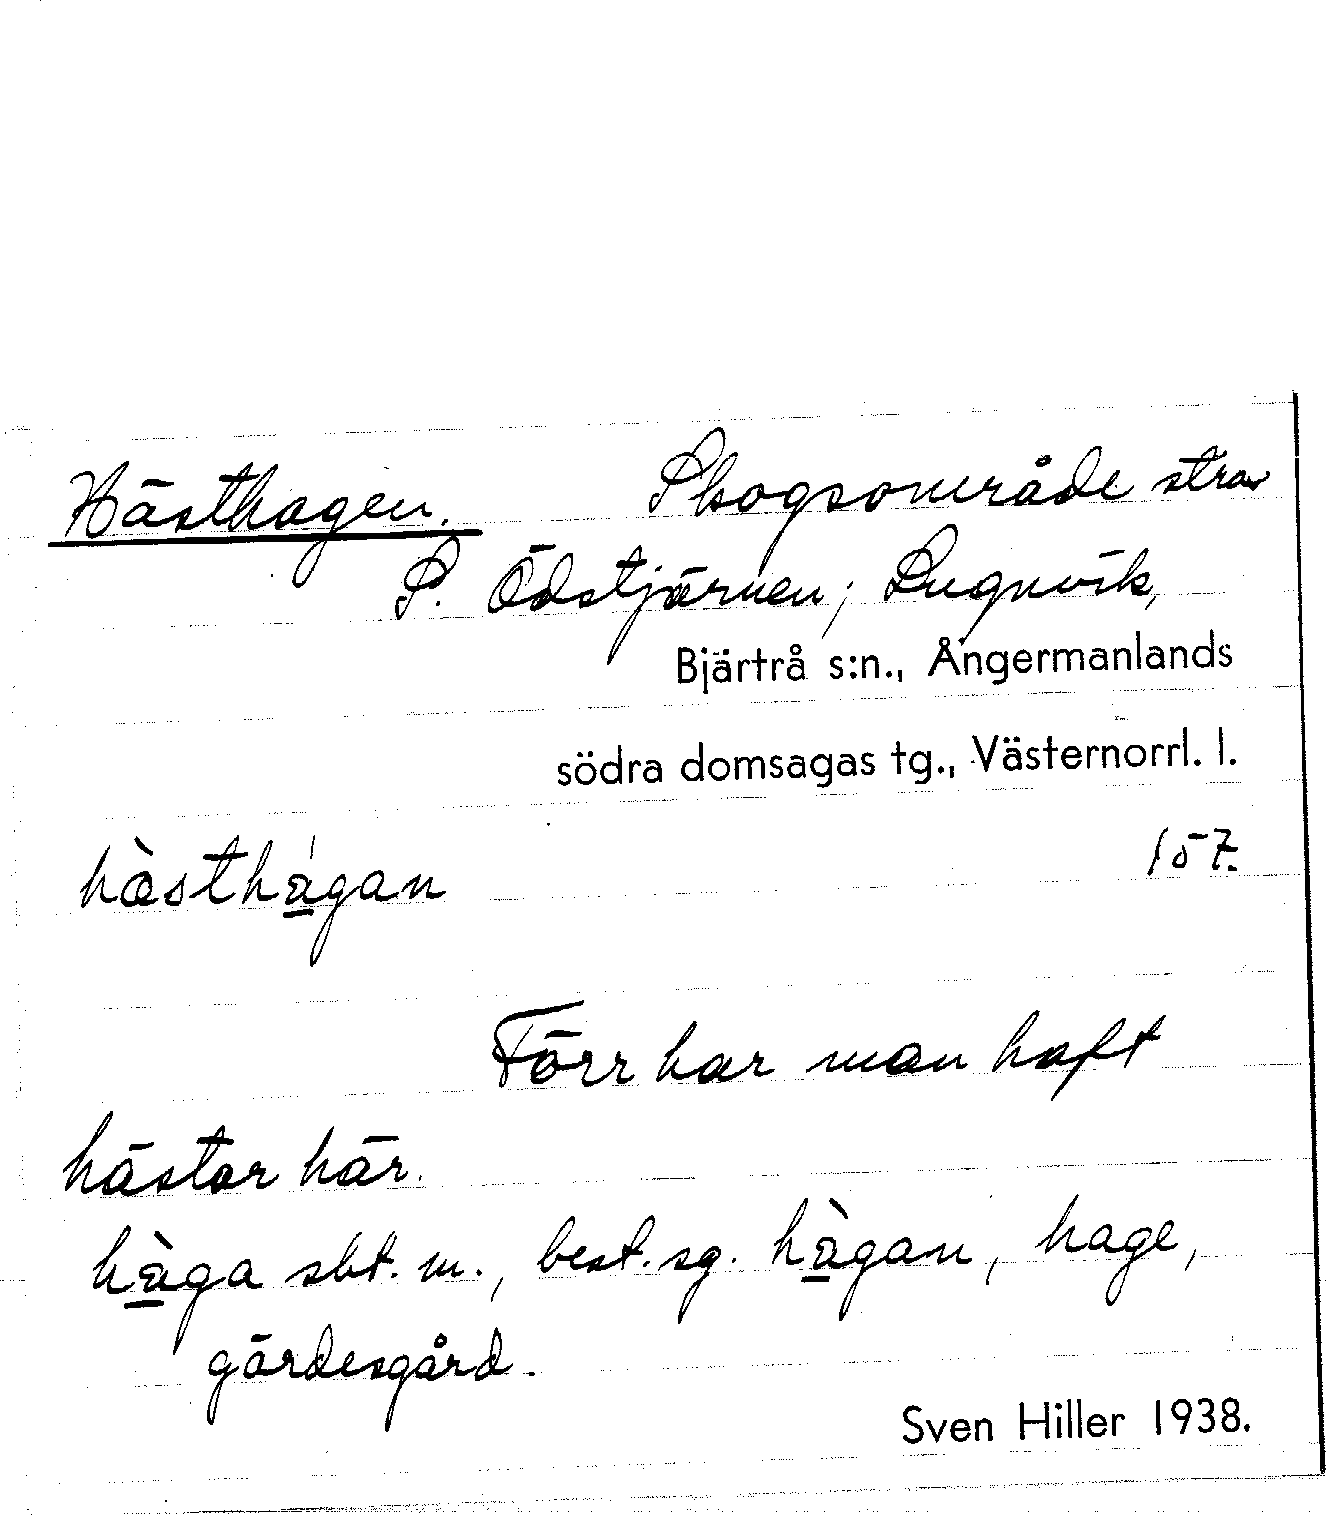 Hästhagen. Skogsområde strax
S. Ödstjärnen; Lugnvik,
Bjärtrå s:n., Ångermanlands
södra domsagas tg., Västernorrl. l.
hæ̀sthá̱gan 157.
Förr har man haft
hästar här.
hà̱ga sbt. m., best. sg. hà̱gan, hage,
gärdesgård.
Sven Hiller 1938.